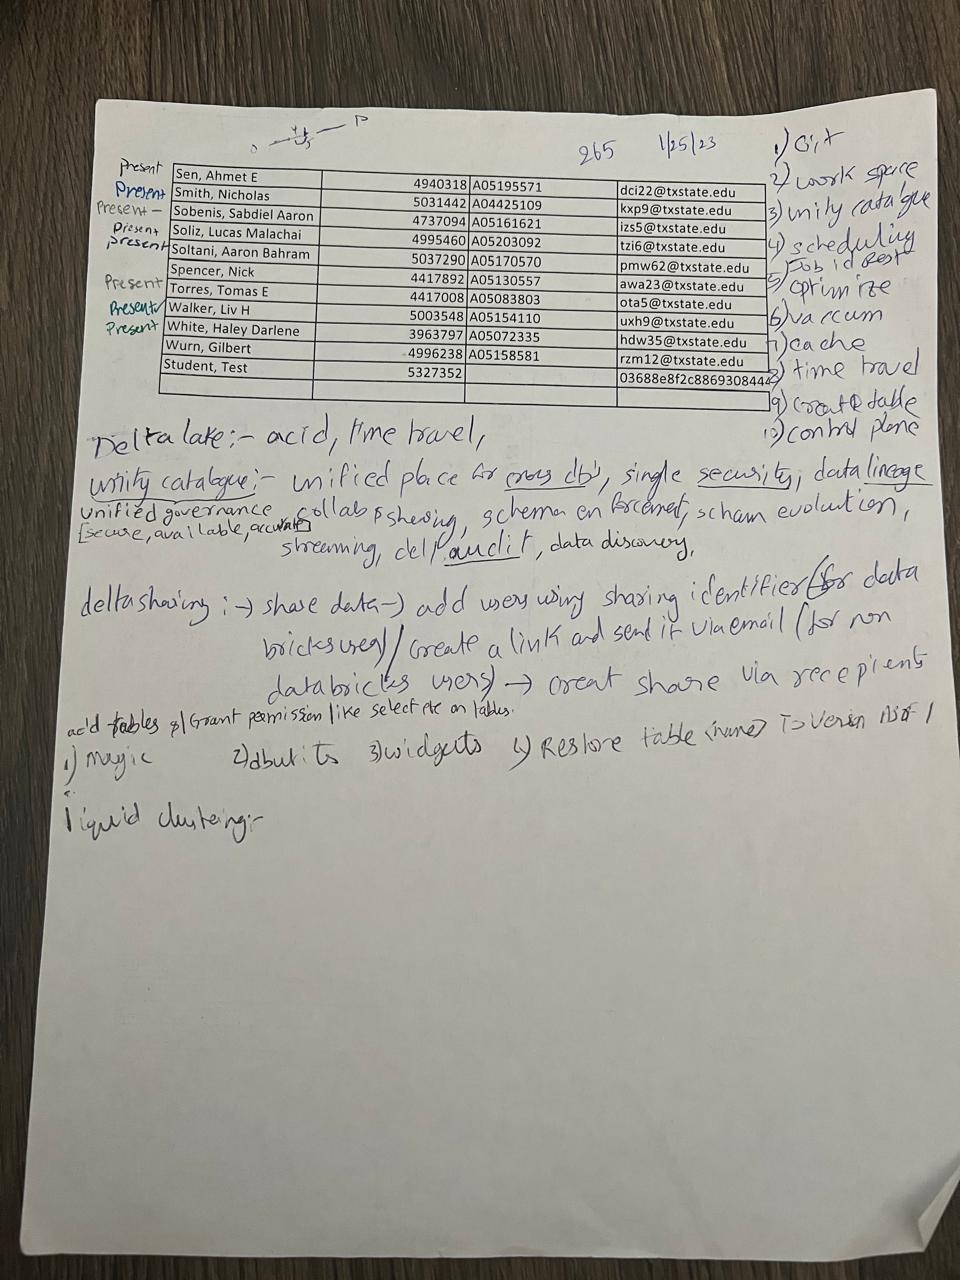 P
265 1/25/23
Present Sen, Ahmet E 4940318 A05195571 dci22@txstate.edu
Present Smith, Nicholas 5031442 A04425109 kxp9@txstate.edu
Present - Sobenis, Sabdiel Aaron 4737094 A05161621 izs5@txstate.edu
Present Soliz, Lucas Malachai 4995460 A05203092 tzi6@txstate.edu
present Soltani, Aaron Bahram 5037290 A05170570 pmw62@txstate.edu
Spencer, Nick 4417892 A05130557 awa23@txstate.edu
Present Torres, Tomas E 4417008 A05083803 ota5@txstate.edu
Present Walker, Liv H 5003548 A05154110 uxh9@txstate.edu
Present White, Haley Darlene 3963797 A05072335 hdw35@txstate.edu
Wurn, Gilbert 4996238 A05158581 rzm12@txstate.edu
Student, Test 5327352 03688e8f2c8869308444
1) Git
2) work space
3) unity catalgue
4) scheduling
Job id Rest
5) optimize
6) vaccum
7) cache
8) time travel
9) create table
10) control plane
Delta lake:- acid, time travel,
unity catalogue:- unified place for cross db's, single security, data lineage
unified governance collab & sharing, schema enforcement, scham evolution,
[secure, available, accurate]
streaming, del, audit, data discovery,
delta sharing :→ share data → add users using sharing identifier (for data
bricks user) / create a link and send it via email (for non
databricks users) → creat share via recepients
acid tables Grant permission like select etc on tables.
1) magic 2) dbutils 3) widgets 4) Restore table <name> To Version As of 1
liquid clustering:-